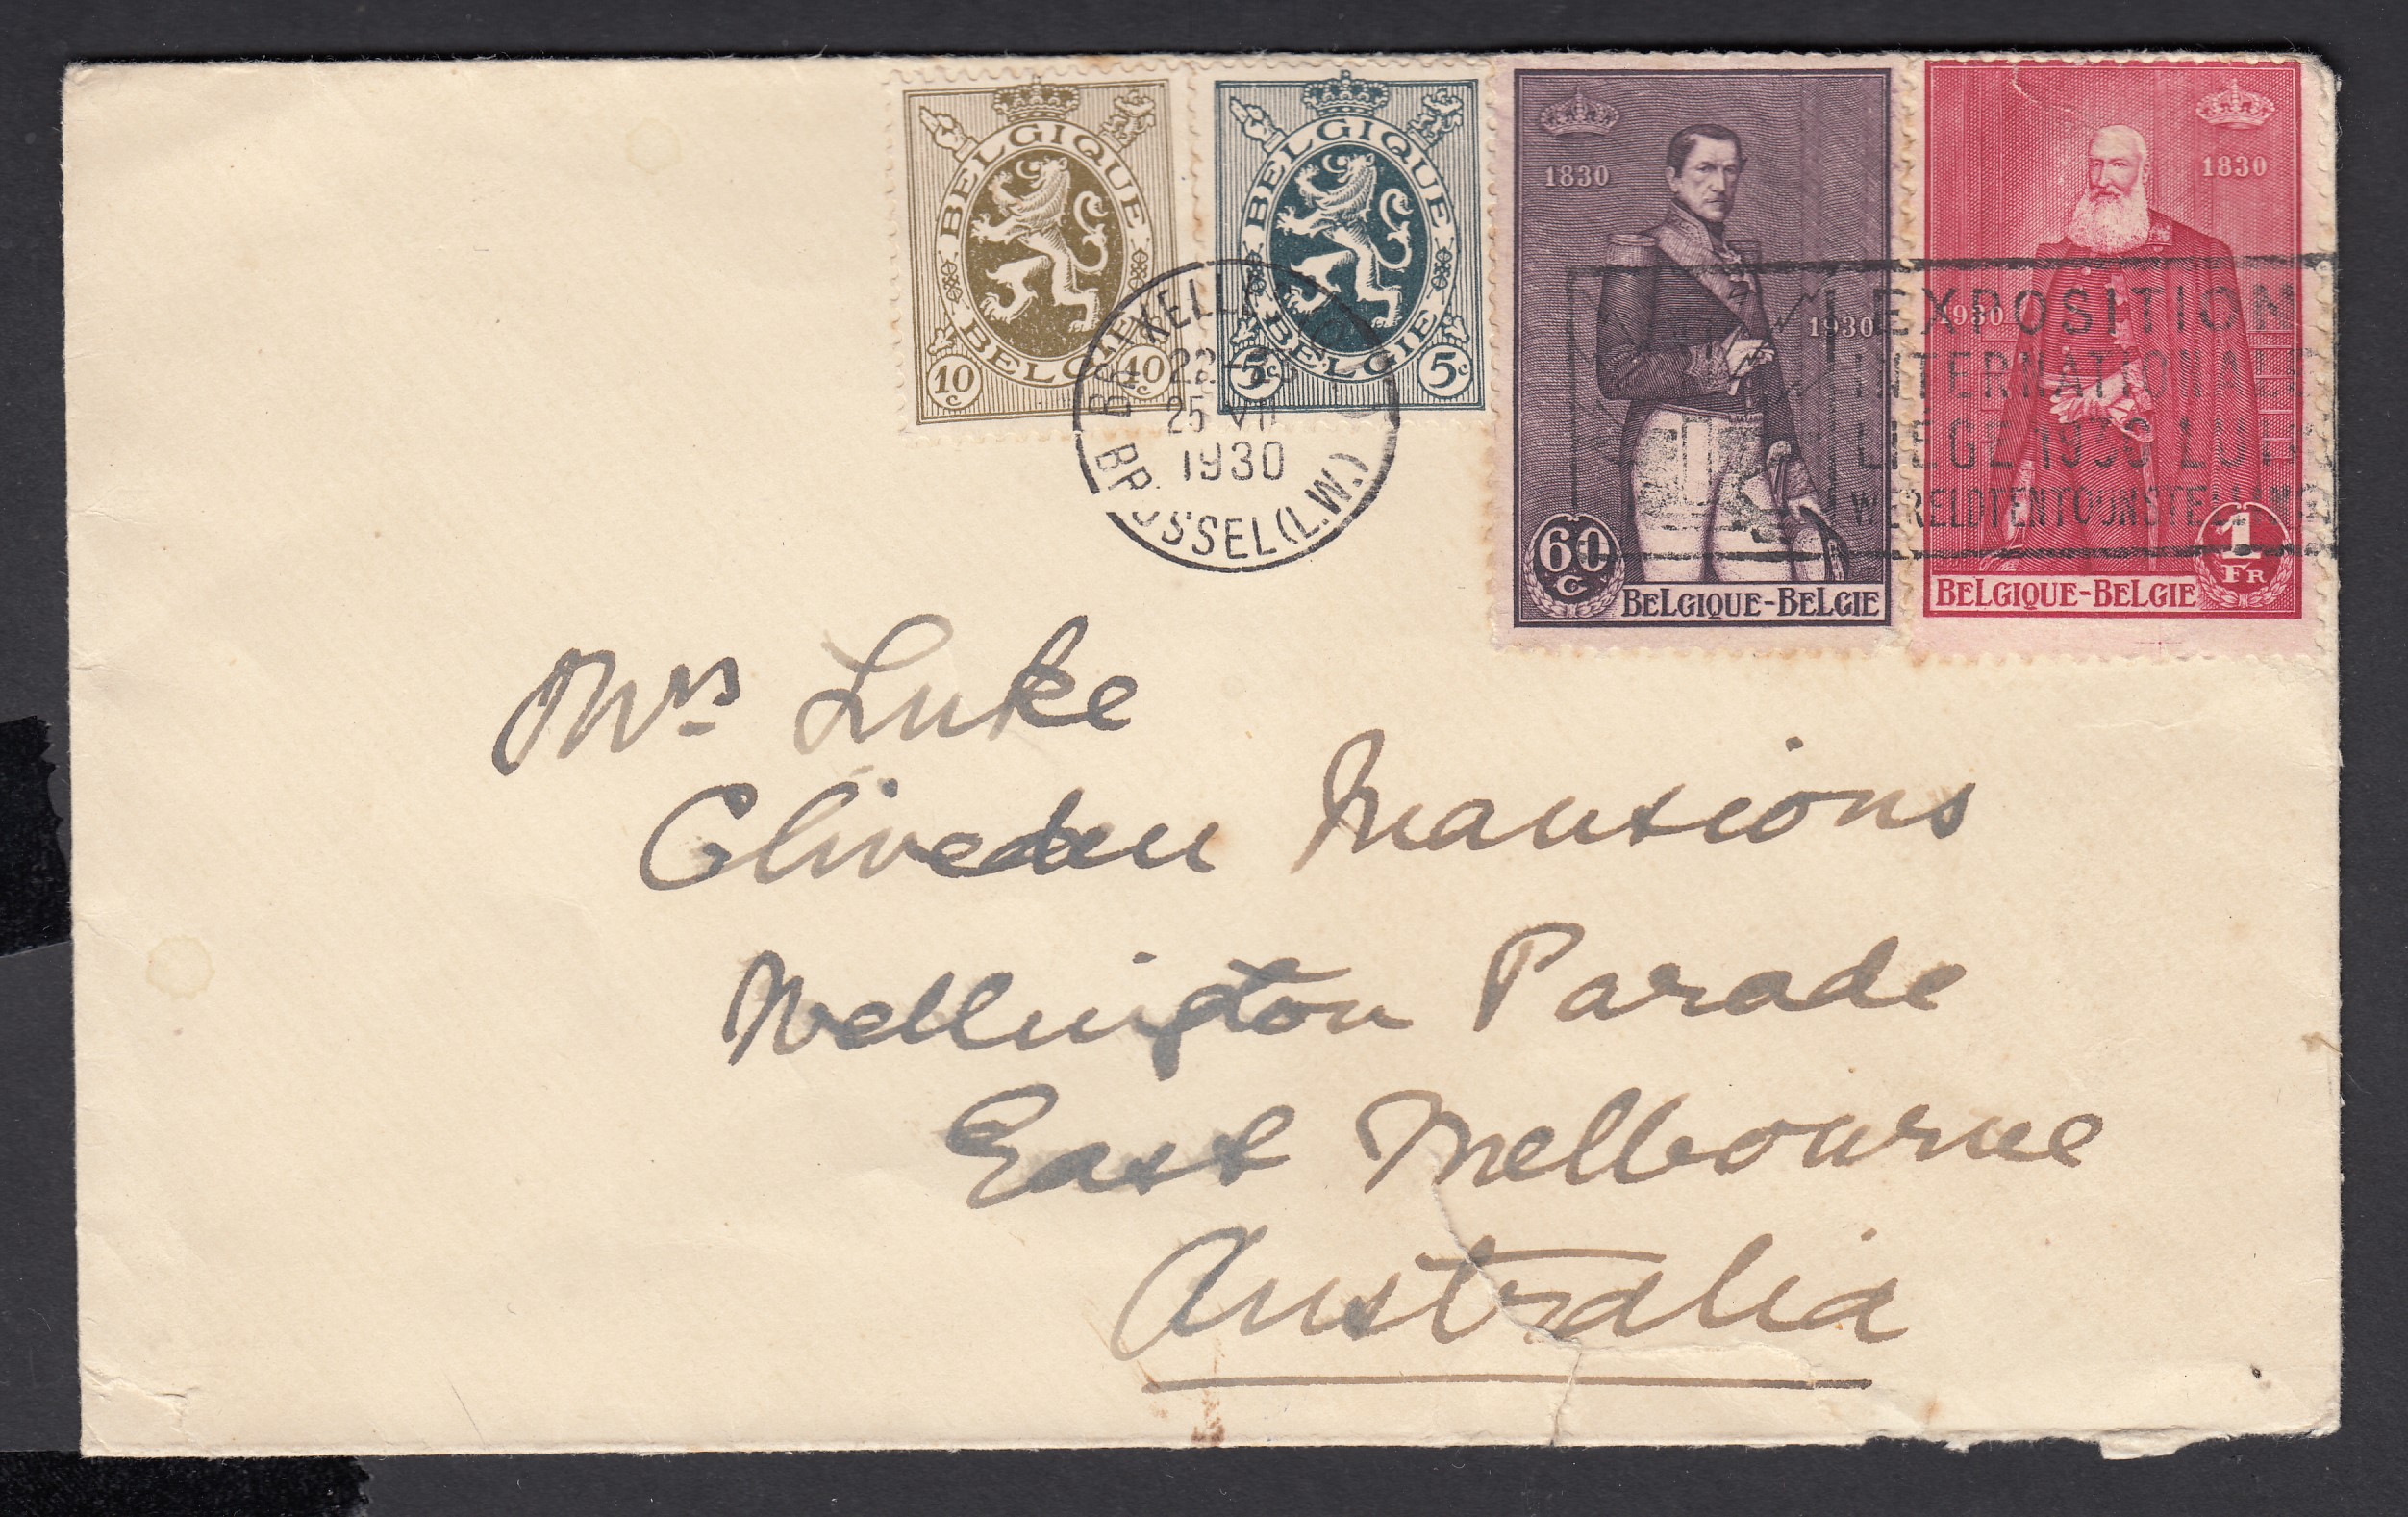 BELGIQUE
BELGIE
10c
BELGIQUE
BELGIE
5c 5c
1830
1930
60 C
BELGIQUE-BELGIE
1830
1930
1 FR
BELGIQUE-BELGIE
25 VII
1930
BRUSSEL (L.W.)
EXPOSITION
INTERNATIONALE
LIÉGE 1930
WERELDTENTOONSTELLING
Mrs Luke
Cliveden Mansions
Wellington Parade
East Melbourne
Australia